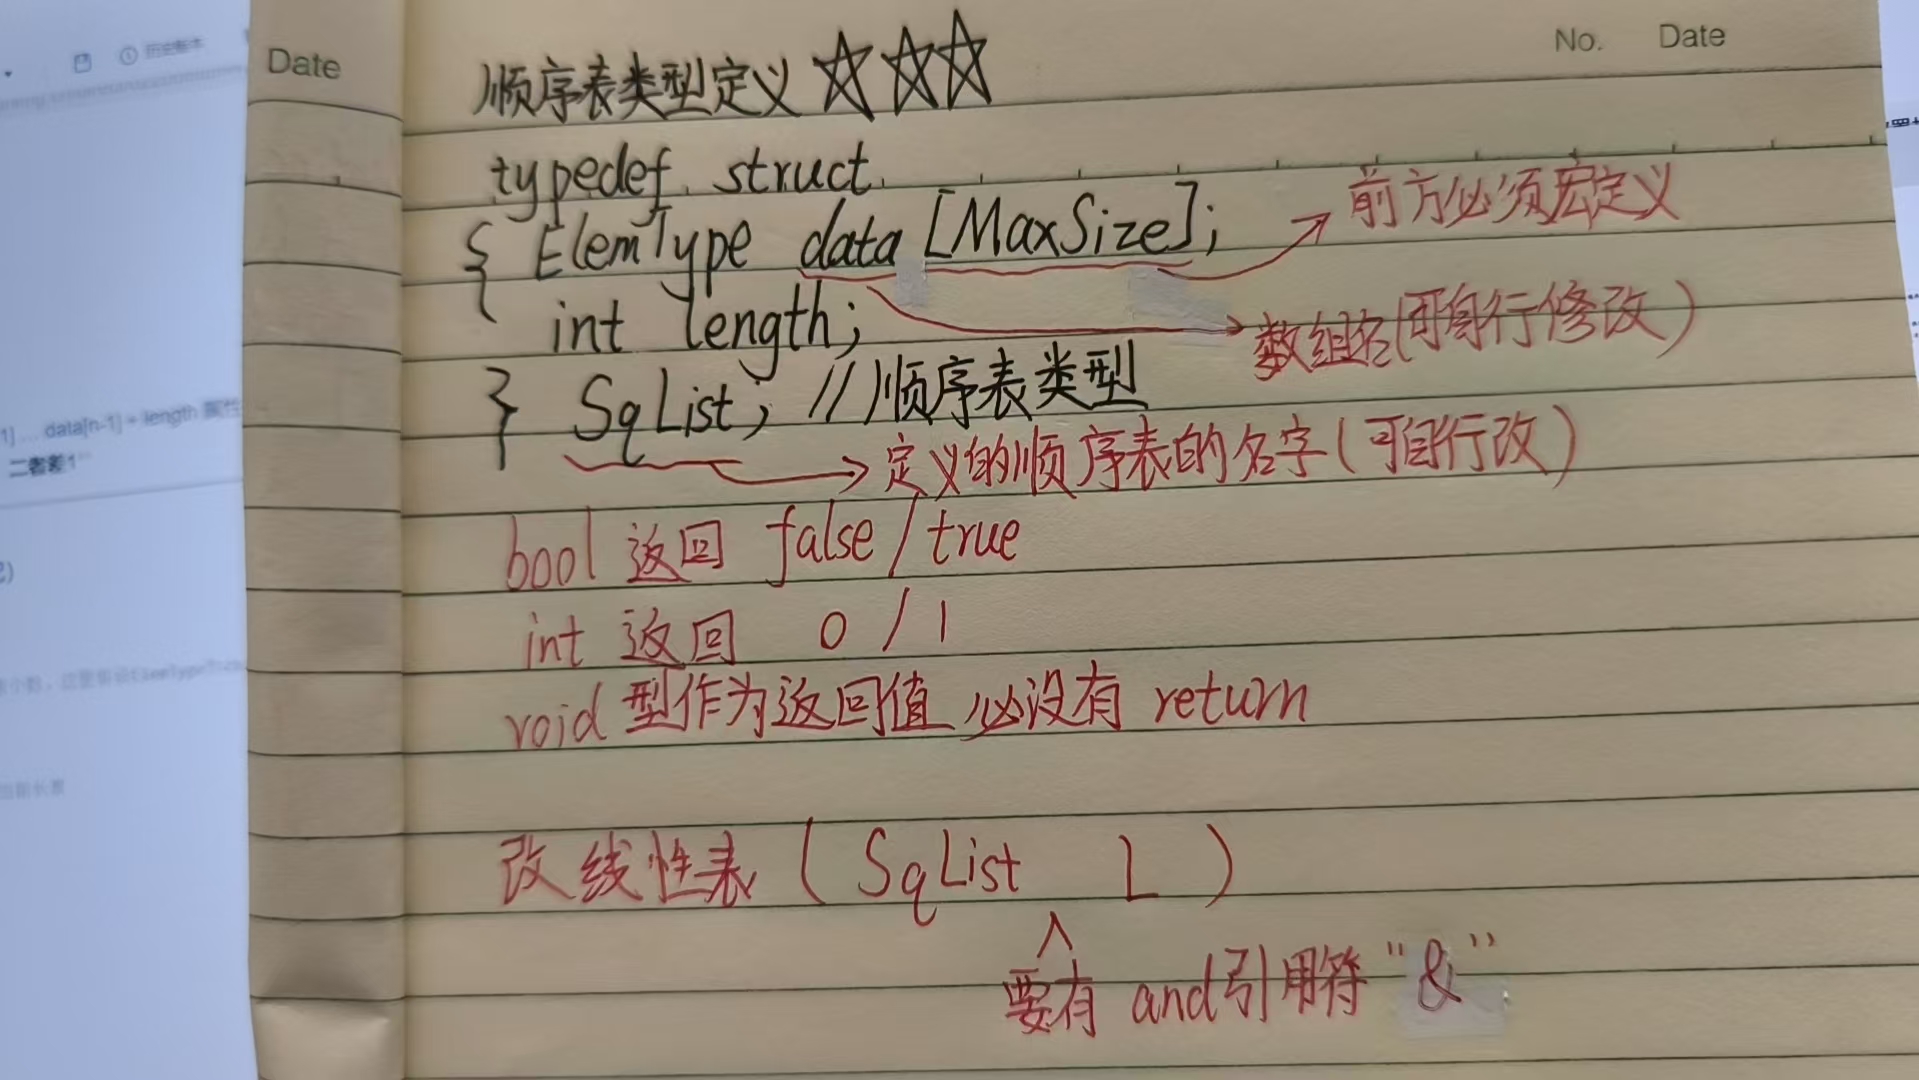 历史版本
Date
No. Date
顺序表类型定义 ☆☆☆
typedef struct
{ ElemType data [MaxSize];
前方必须宏定义
int length;
数组名(可自行修改)
} SqList; //顺序表类型
定义的顺序表的名字(可自行改)
bool 返回 false / true
int 返回 0 / 1
void 型作为返回值 必没有 return
改线性表 ( SqList L )
∧
要有 and引用符 "&"
1] ... data[n-1] + length 属性
二者差1